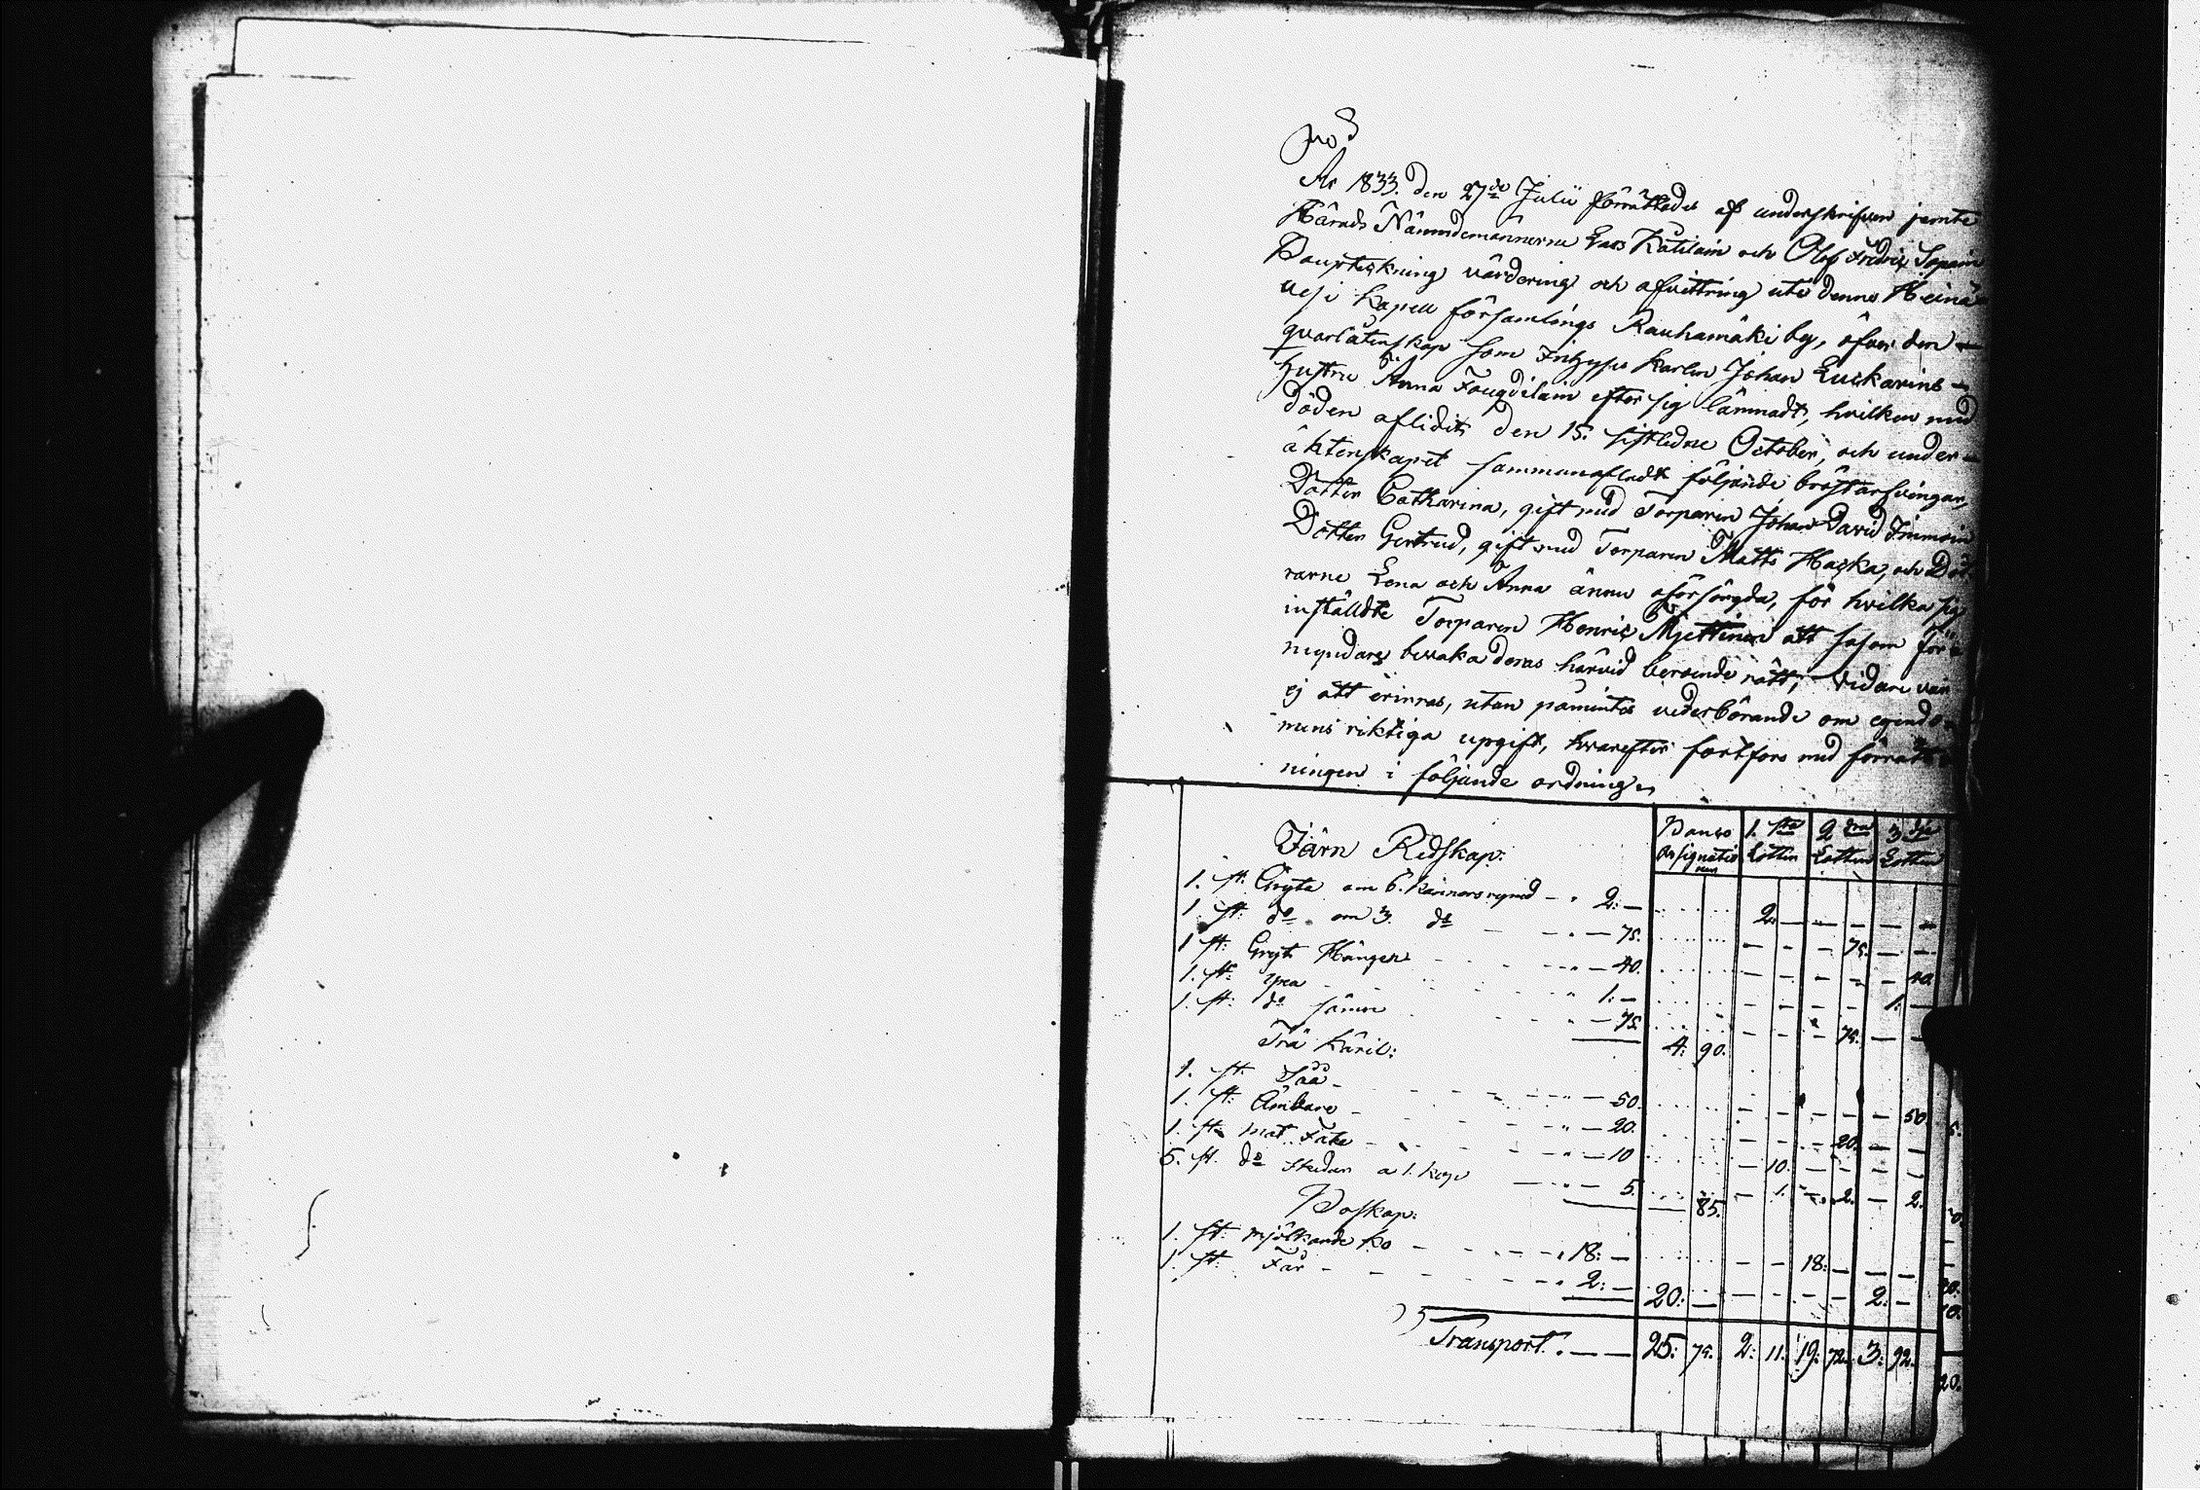 No 8
År 1833. den 27de Julii förrättades af underskrifven jemte
Härads Nämndemännerne Lars Kätilain och Olof Fredric
Bouptekning värdering och afvittring uti denne Heinä-
vesi Kapell församlings Rauhamäki by, öfver den
qvarlåtenskap som Inhyses Karlen Johan Luckarins
hustru Anna Fougdilain efter sig lämnadt, hvilken med
döden aflidit den 15. sistledne October, och under
äktenskapet sammanafladt följande bröstarfvingar,
Dotter Catharina, gift med Torparen Johan David Immoin
Dotter Gertrud, gift med Torparen Matts Hacka, och Dött-
rarne Lena och Anna ännu oförsörgda, för hvilka sig
inställdte Torparen Henric Miettinen att såsom För-
myndare bevaka deras härvid beroende rätt, vidare var
ej att erinras, utan påmintes vederbörande om egendo-
mens riktiga upgift, hvarefter fortfors med förrätt-
ningen i följande ordning
Järn Redskap:
Banco Assignationer 1. sta Lotten 2 dra Lotten 3 dje Lotten
1. st: Gryta om 6. kannors rymd — 2: — 2: —
1 st: do om 3. do — 75. 75.
1 st: Gryt Hänger — 40. 40.
1. st: yxa 1: — 1: —
1. st: do sämre — 75. 4: 90. 75.
Trä Käril:
1. st. Såå — 50. 50
1. st: Ämbare — 20. 20.
1. st: mat Fate — 10 10.
5. st. do skedar a 1. kop — 5. 85. 1. 2. 2.
Boskap:
1. st: mjölkande ko 18: — 18: —
1. st. Får 2: — 20: — 2: —
Transport. — 25: 75. 2: 11. 19: 72. 3: 92.